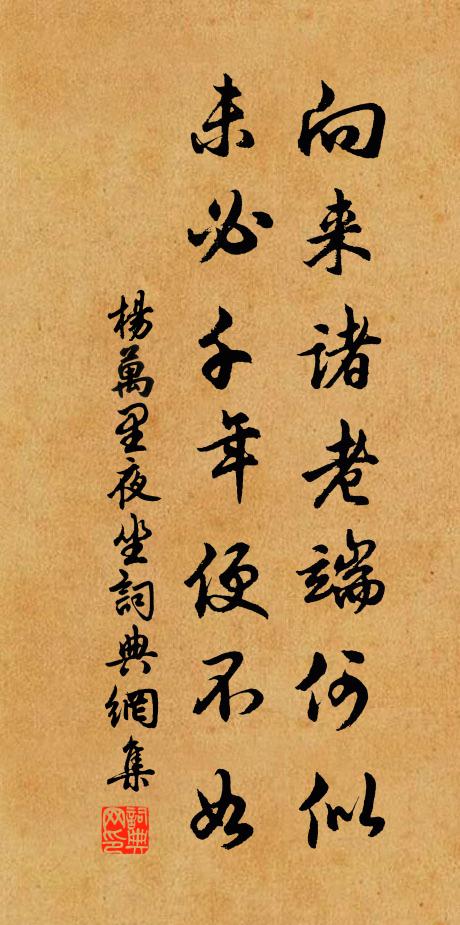 向来诸老端何似
未必千年便不如
楊萬里夜坐詞典網集
詞典网印